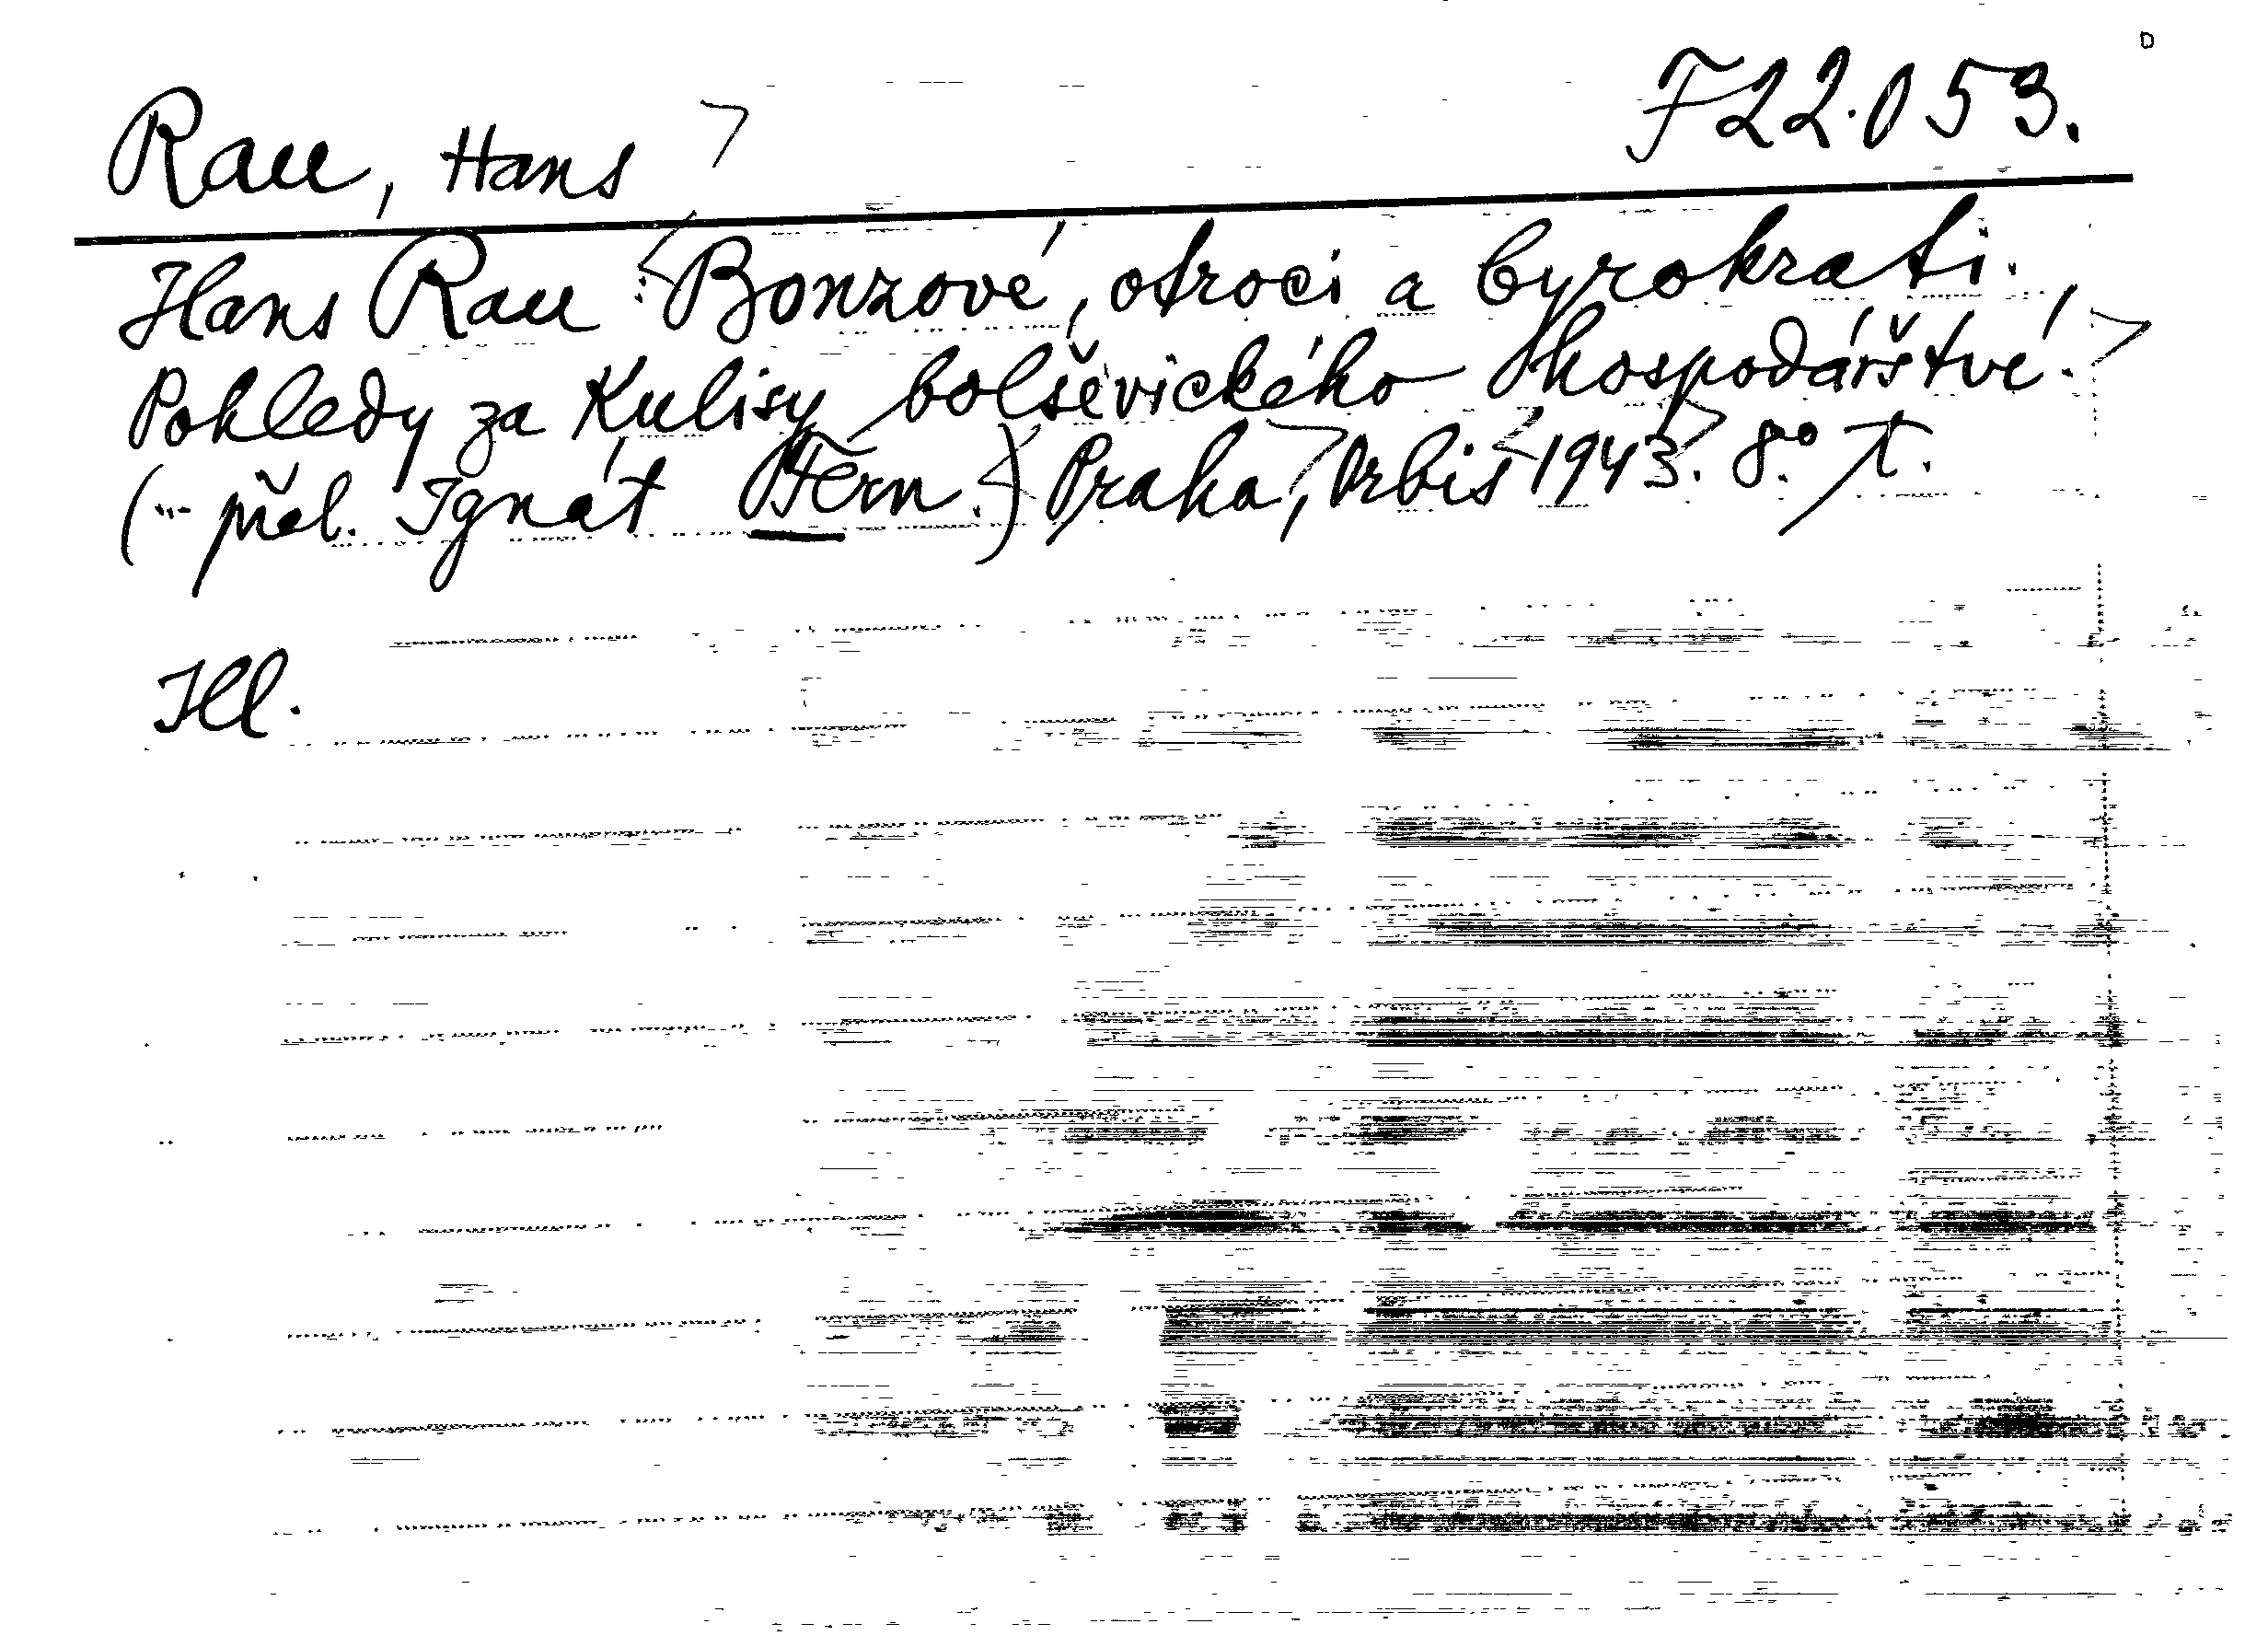 Rau, Hans F 22.053.
Hans Rau: Bonzové, otroci a byrokrati.
Pohledy za kulisy bolševického hospodářství.
(... přel. Ignát Hěrn.) Praha, Orbis 1943. 8° T.
Ill.